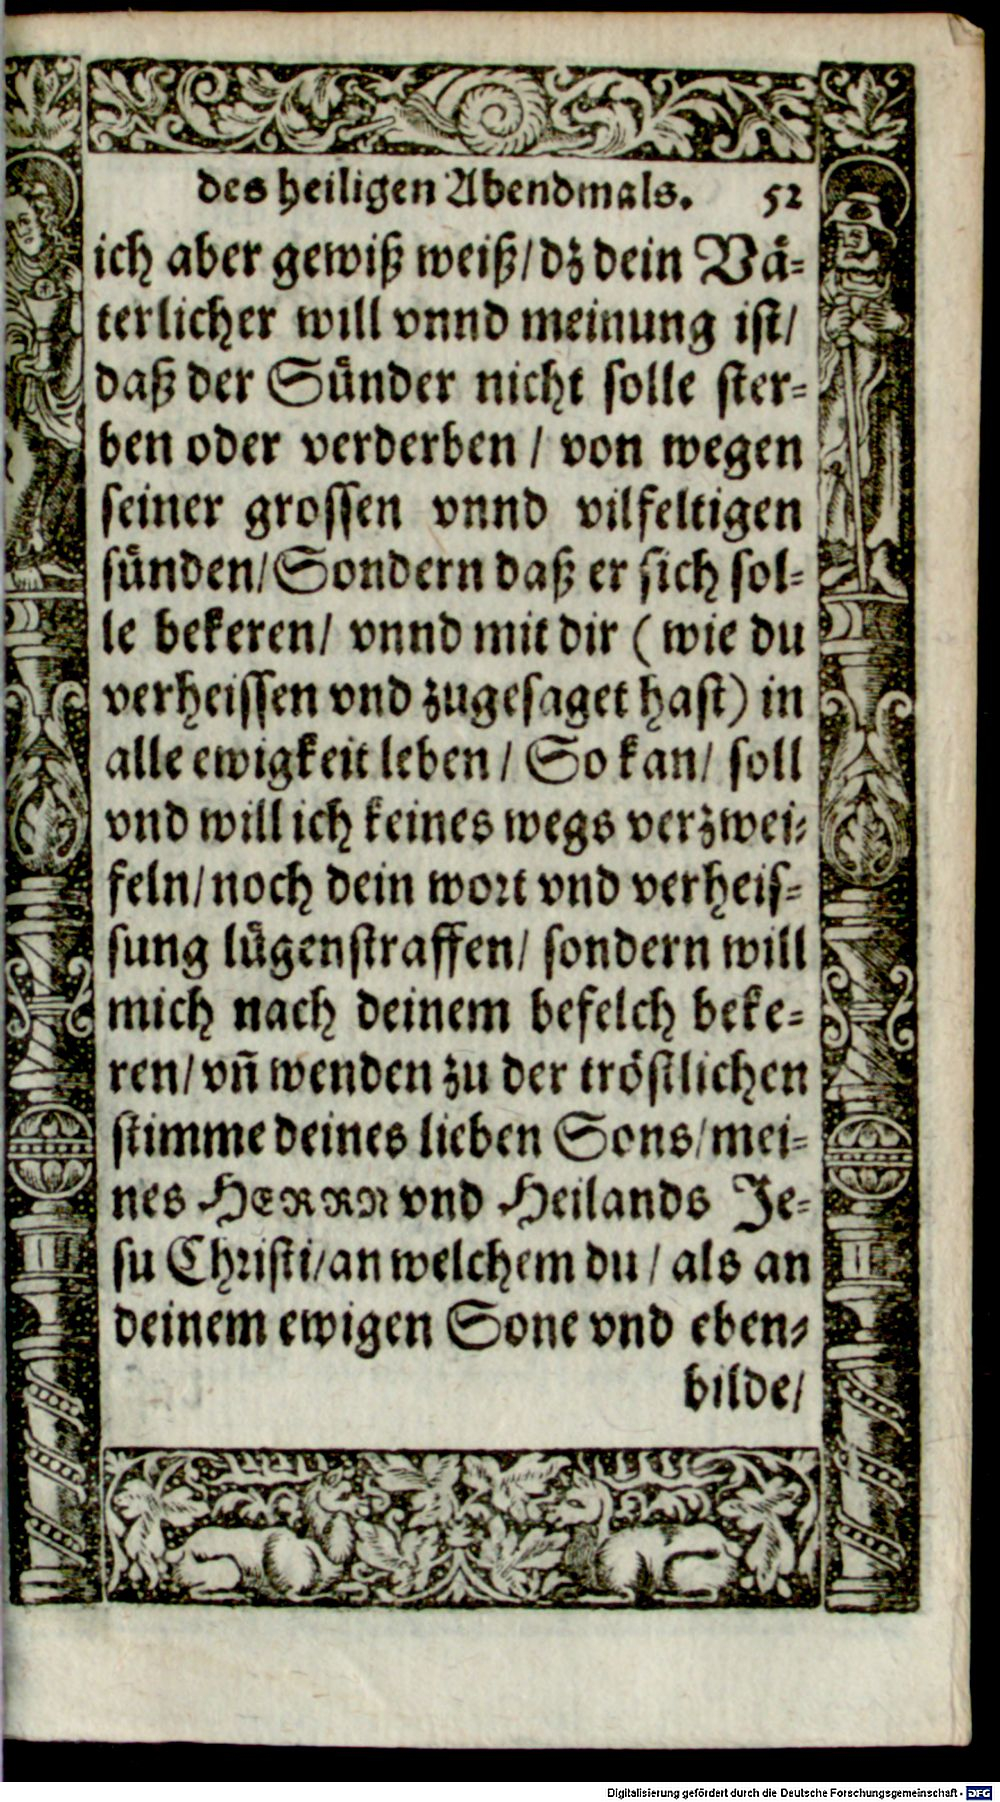 des heiligen Abendmals. 52
ich aber gewiß weiß/dz dein Vä-
terlicher will vnnd meinung ist/
daß der Sünder nicht solle ster-
ben oder verderben / von wegen
seiner grossen vnnd vilfeltigen
sünden/Sondern daß er sich sol-
le bekeren/ vnnd mit dir (wie du
verheissen vnd zugesaget hast) in
alle ewigkeit leben / So kan/ soll
vnd will ich keines wegs verzwei-
feln/noch dein wort vnd verheis-
sung lügenstraffen/ sondern will
mich nach deinem befelch beke-
ren/vñ wenden zu der tröstlichen
stimme deines lieben Sons/mei-
nes HERRN vnd Heilands Je-
su Christi/an welchem du / als an
deinem ewigen Sone vnd eben-
bilde/
Digitalisierung gefördert durch die Deutsche Forschungsgemeinschaft - DFG